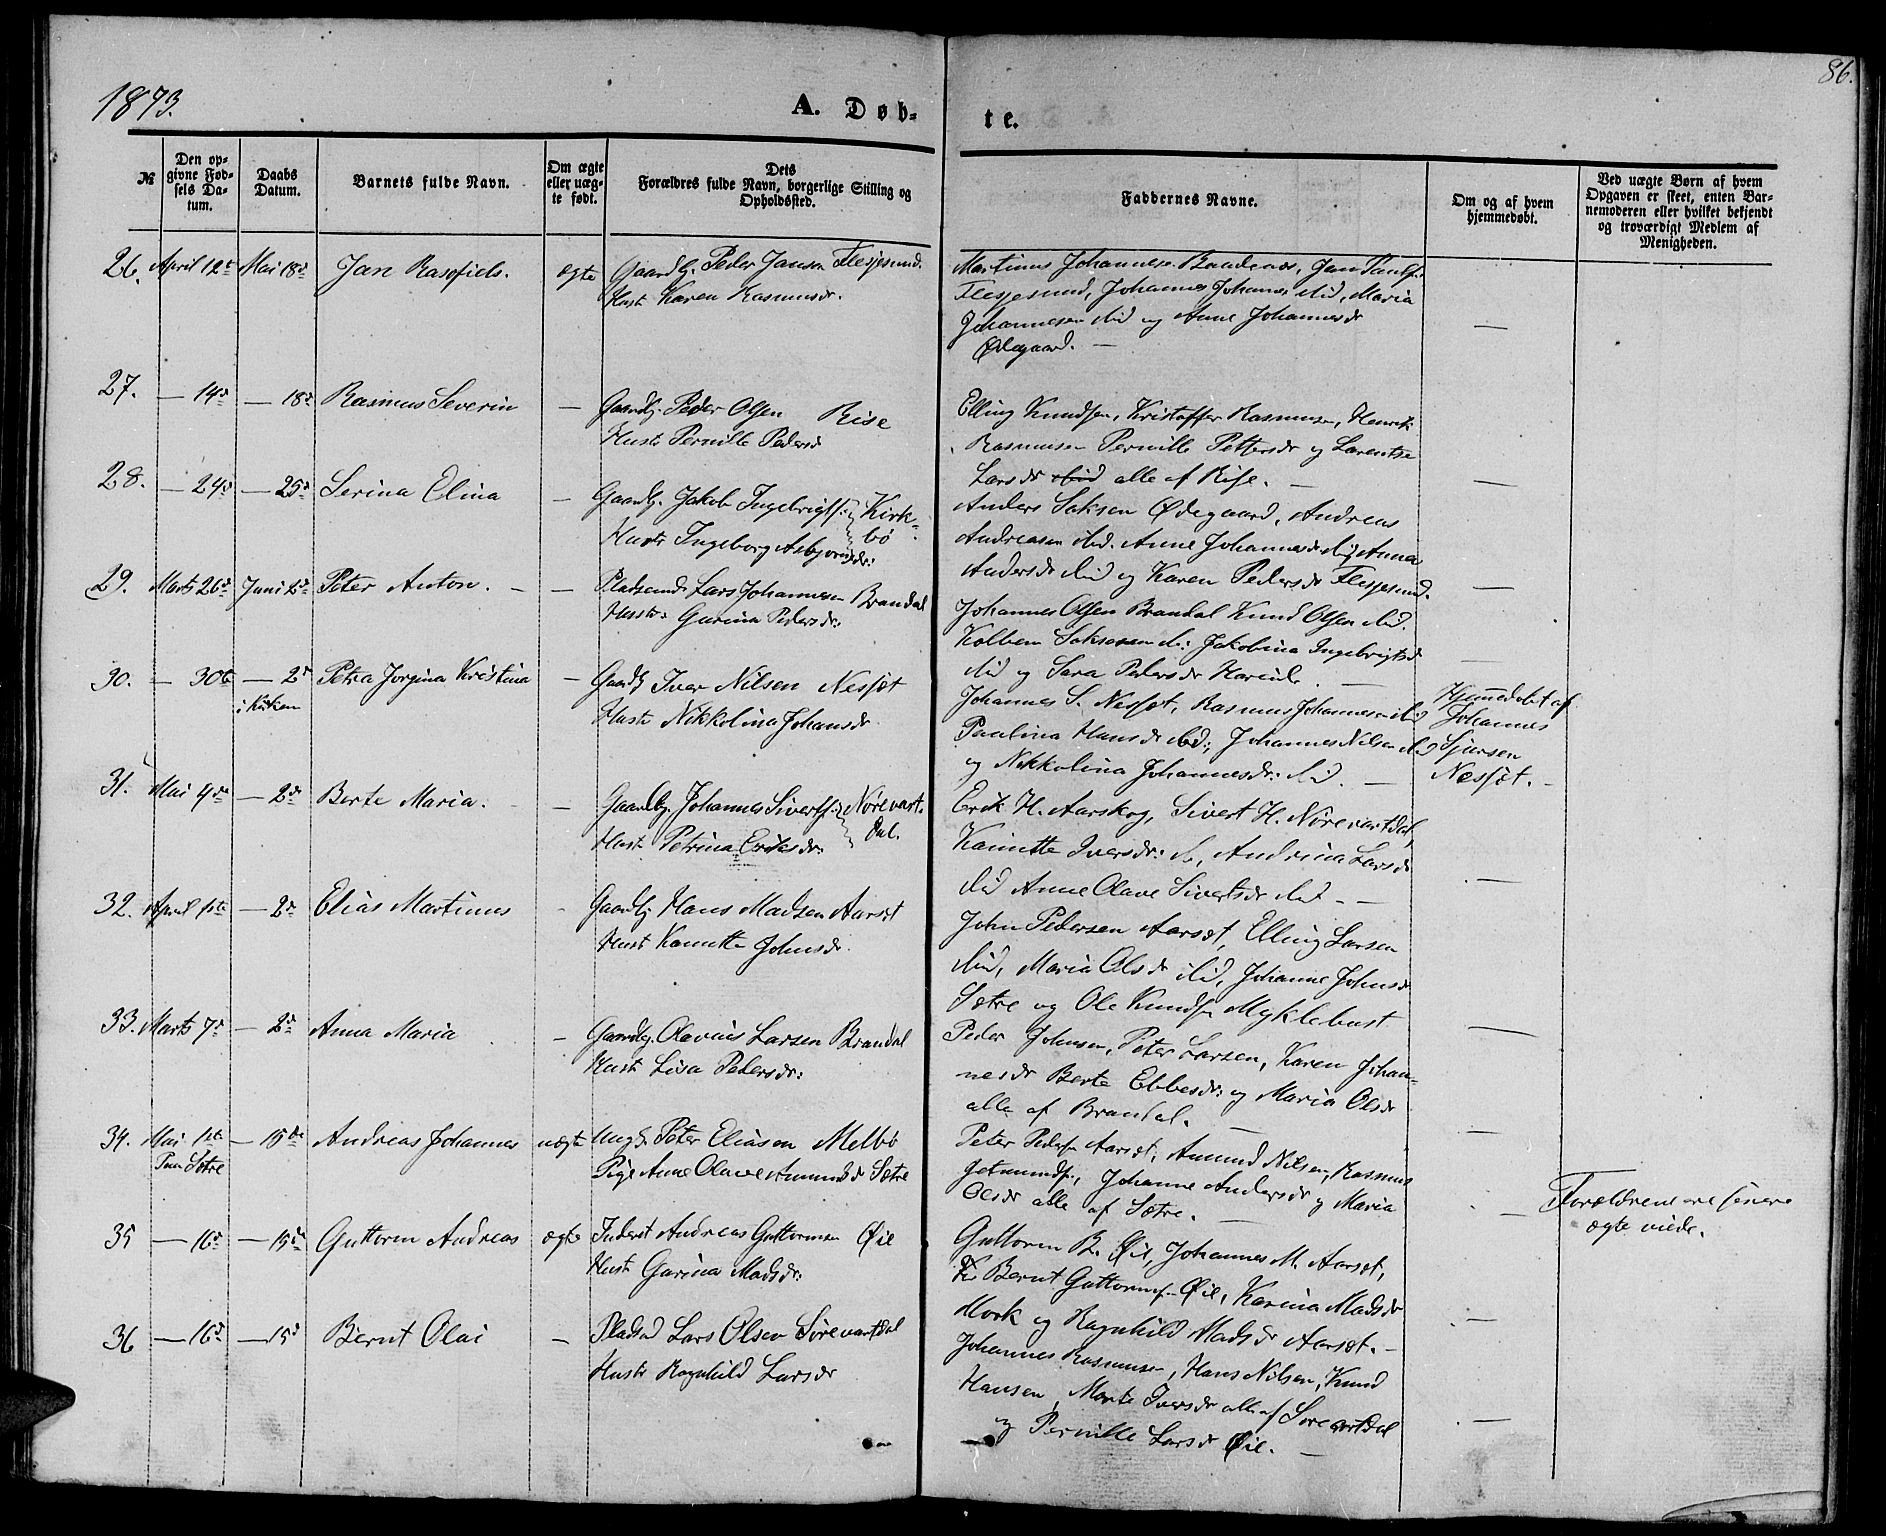 1873.
A. Døb-
te.
86.
№
Den op-
givne Fød-
sels Da-
tum.
Daabs
Datum.
Barnets fulde Navn.
Om ægte
eller uæg-
te født.
Dets
Forældres fulde Navn, borgerlige Stilling og
Opholdssted.
Faddernes Navne.
Om og af hvem
hjemmedøbt.
Ved uægte Børn af hvem
Opgaven er skeet, enten Bar-
nemoderen eller hvilket bekjendt
og troværdigt Medlem af
Menigheden.
26. April 12te Mai 18de Jan ægte Gaardbr. Peder Jansen Flesjesund.
Hustr Karen Rasmusdr.
Martinus Johannesen Jan
Flesjesund, Johannes Johannes ibid, Maria
Johannesen ibid og Anne Johannesdr
Ødegaard. —
—
27. — 14de — 18de Rasmus Severin — Gaardbr. Peder Olsen Rise
Hustr Pernille Pedersdr
Elling Knudsen, Kristoffer Rasmusen, Henrik
Rasmusen Pernille Pettersdr og Larentse
Larsdr ibid alle af Rise. —
—
28. — 24de — 25de Serina Elina — Gaardbr. Jakob Ingebrigts. Kirk-
bø
Hustr Ingeborg Asbjørnsdr:
Anders Saksen Ødegaard, Andreas
Andreasen ibid. Anne Johannesdr ibid Anna
Andersdr ibid og Karen Pedersdr Flesjesund.
—
29. Marts 26de Juni 2de Peter Anton. — — Pladsmd Lars Johannesen Brandal
Hustr: Gurina Pedersdr:
Johannes Olsen Brandal Knud Olsen ibid.
Kolben Saksesen ib: Jakobina Ingebrigtsdr
ibid og Sara Pedersdr Hareide. —
—
30. — 30te — 2de Petra Jorgina Kristina — Gaardb Iver Nilsen Nessjet
i Kirken
Hustr Nikkolina Johansdr.
Johannes S. Nessjet, Rasmus Johannesen ibid
Paulina Hansdr ibid; Johannes Nilsen ibid
og Nikkolina Johannesdr: ibid. —
Hjemmedøbt af
Johannes
Sjursen
Nessjet. —
31. Mai 9de — 2de Berte Maria. — Gaardbr. Johannes Siverts. Nørevart-
dal.
Hustr Petrina Eriksdr:
Erik H. Aarskog, Sivert H. Nørevartdal,
Kanutte Iversdr: ib, Andrina Larsdr
ibid Anne Olave Sivertsdr ibid — —
—
32. April 1ste — 2de Elias Martinus — Gaardbr Hans Madsen Aarset
Hustr Kanutte Johnsdr.
John Pedersen Aarset, Elling Larsen
ibid, Maria Olsdr ibid, Johanne Johnsdr
Sætre og Ole Knuds. Myklebust
—
33. Marts 7de — 2de Anna Maria — Gaardbr. Olavius Larsen Brandal
Hustr Lisa Pedersdr:
Peder Johnsen, Peter Larsen, Karen Johan-
nesdr Berte Ebbesdr: og Maria Olsdr
alle af Brandal. —
—
34. Mai 1ste — 15de Andreas Johannes uægte Ungk. Peter Eliasen Melbø
Sætre
Pige Anne Olave Amundsdr Sætre
Peter Peders. Aarset, Amund Nilsen, Rasmus
Johanne Andersdr og Maria
Olsdr alle af Sætre. —
—
Forældrene ere senere
ægte viede.
35 — 16de — 15de Guttorm Andreas ægte Inderst Andreas Guttormsen Øie
Hustr Gurina Madsdr:
Guttorm B. Øie, Johannes M. Aarset,
Bernt Guttorms. Øie, Karina Madsdr
Mork og Ragnhild Madsdr Aarset. —
—
36 — 16de — 15de Bernt Olai — Pladsmd Lars Olsen Sørevartdal
Hustr Ragnhild Larsdr
Johannes Rasmusen, Hans Nilsen, Knud
Hansen, Marte Iversdr alle af Sørevartdal
og Pernille Larsdr Øie. —
—